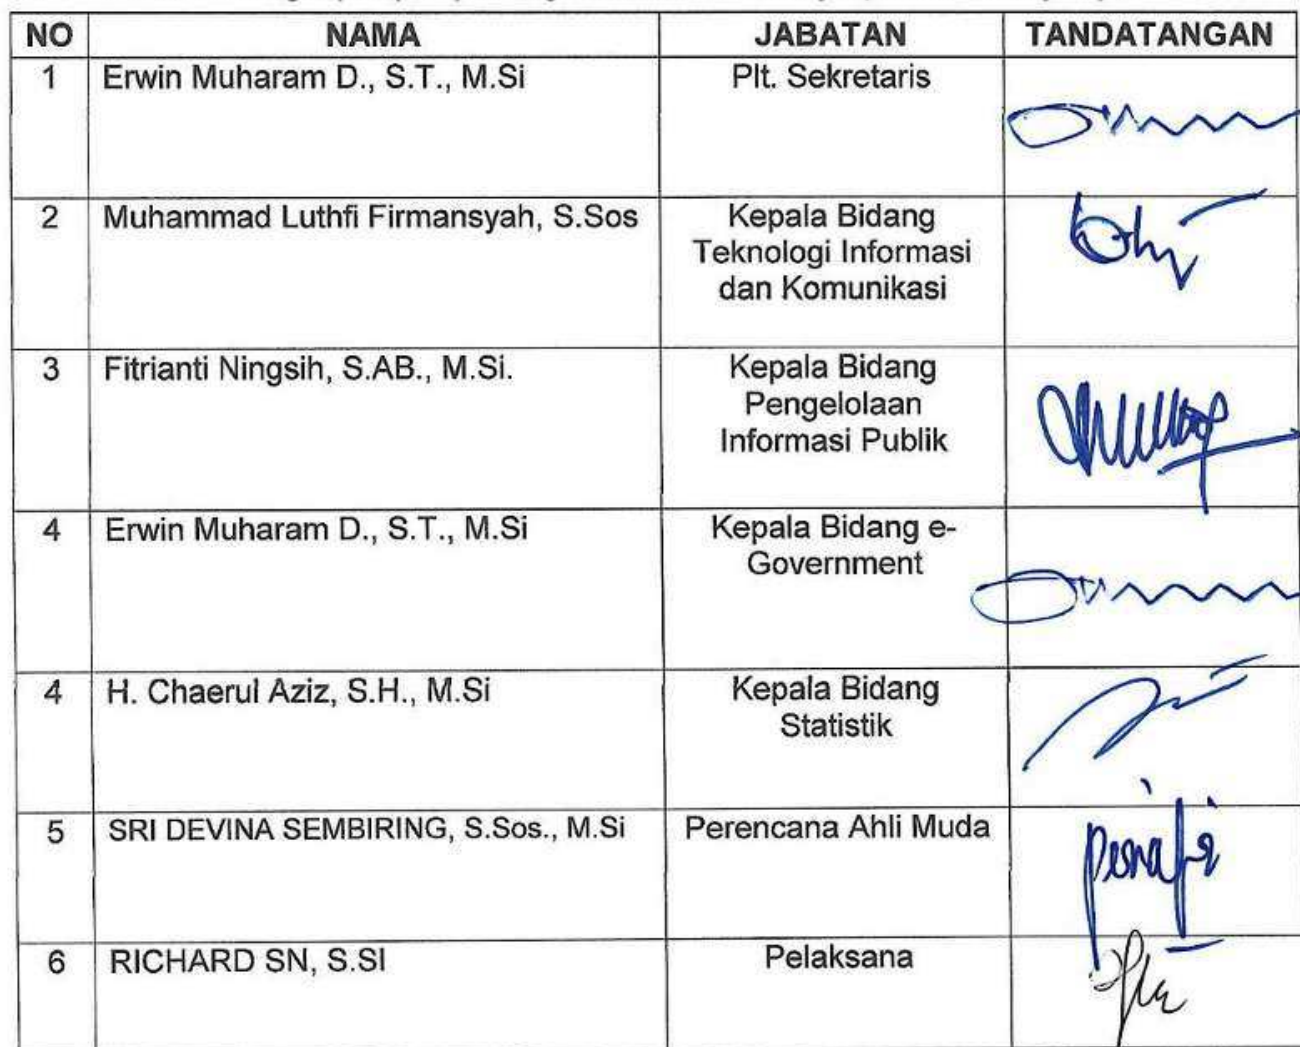 NO NAMA JABATAN TANDATANGAN
1 Erwin Muharam D., S.T., M.Si Plt. Sekretaris
2 Muhammad Luthfi Firmansyah, S.Sos Kepala Bidang
Teknologi Informasi
dan Komunikasi
3 Fitrianti Ningsih, S.AB., M.Si. Kepala Bidang
Pengelolaan
Informasi Publik
4 Erwin Muharam D., S.T., M.Si Kepala Bidang e-
Government
4 H. Chaerul Aziz, S.H., M.Si Kepala Bidang
Statistik
5 SRI DEVINA SEMBIRING, S.Sos., M.Si Perencana Ahli Muda
6 RICHARD SN, S.SI Pelaksana